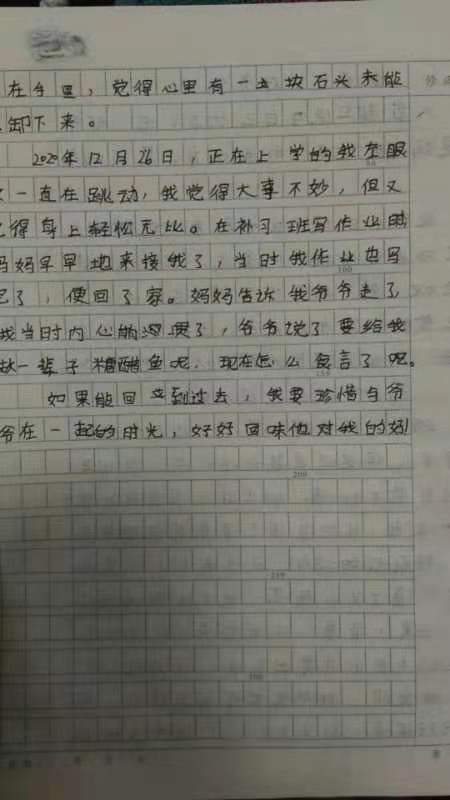 在今里，觉得心里有一块石头未能
卸下来。
2020年12月26日，正在上学的我左眼
一直在跳动，我觉得大事不妙，但又
得身上轻松无比。在补习班写作业时
妈妈早早地来接我了，当时我作业也写
完了，便回了家。妈妈告诉我爷爷走了
我当时内心崩溃了，爷爷说了要给我
做一辈子糖醋鱼呢，现在怎么食言了呢。
如果能回到过去，我要珍惜与爷
爷在一起的时光，好好回味他对我的好
200